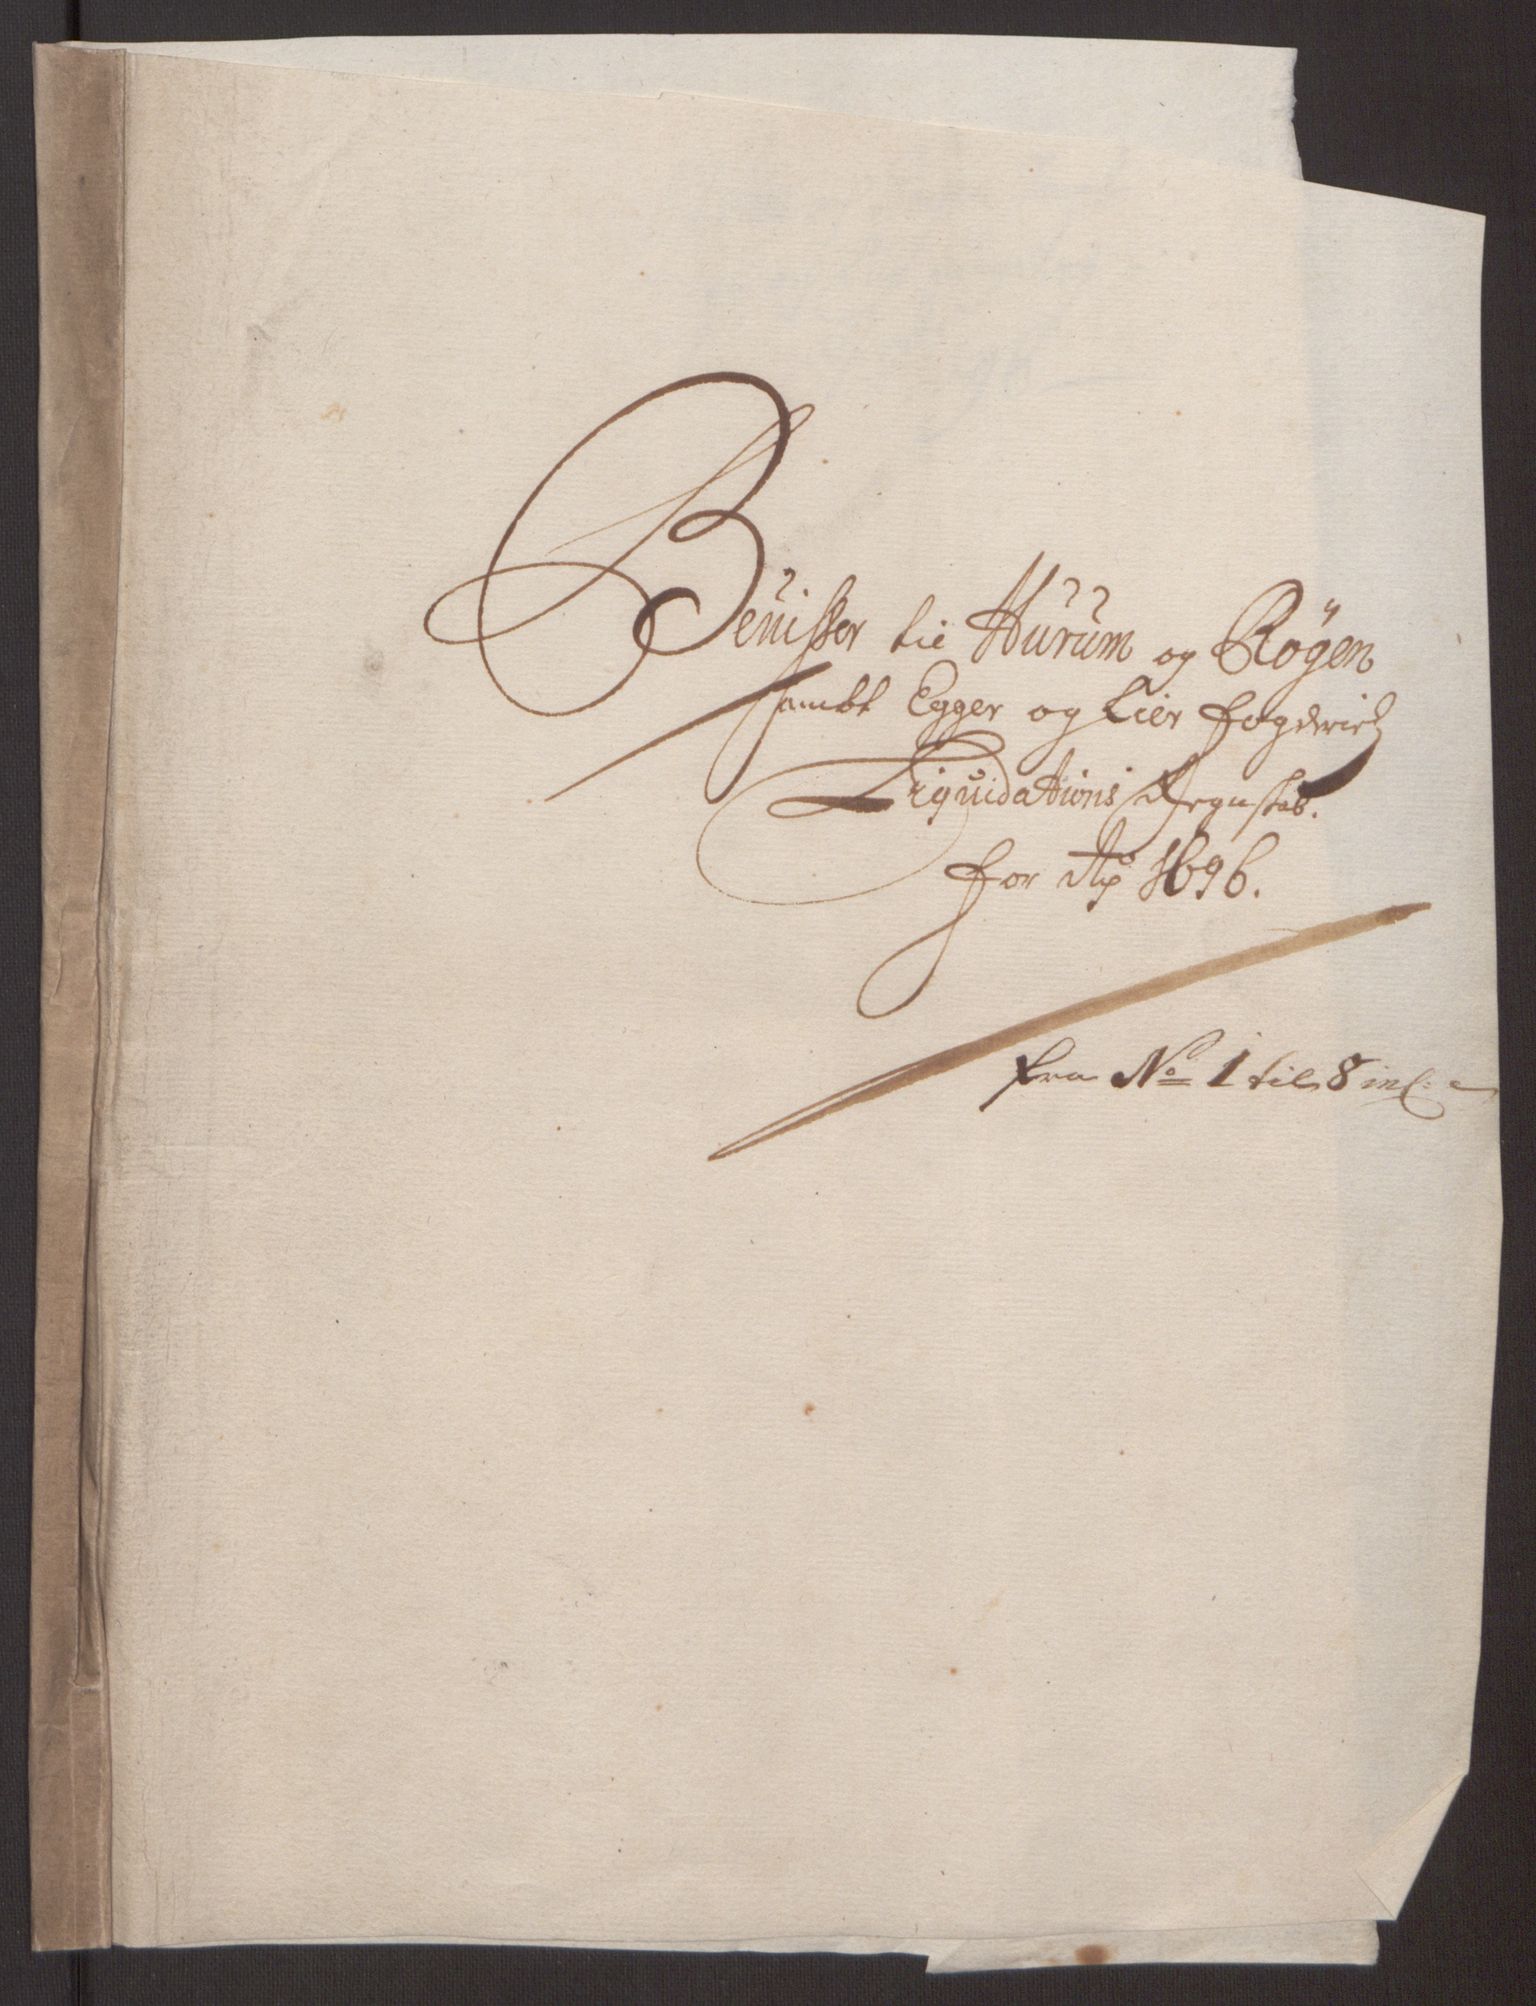 Beuisser til Hurum og Røgen
sambt Egger og Lier fogderies
Liquidations Regnskab.
for Aō 1696.
fra No 1 til 8 incl: